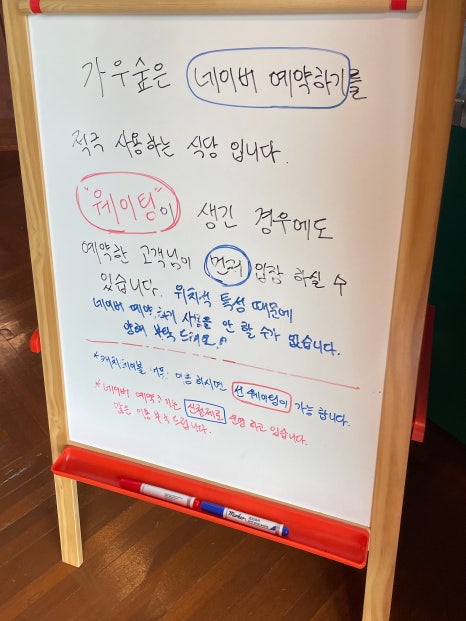 가우숲은 네이버 예약하기를
적극 사용하는 식당 입니다.
"웨이팅"이 생긴 경우에도
예약한 고객님이 먼저 입장 하실 수
있습니다. 위치적 특성 때문에
네이버 예약하기 사용을 안 할 수가 없습니다.
양해 부탁 드려요
*캐치테이블 이용 하시면 선 웨이팅이 가능 합니다.
*네이버 예약하기는 선착제로 운영 하고 있습니다.
많은 이용 부탁 드립니다.
Marker